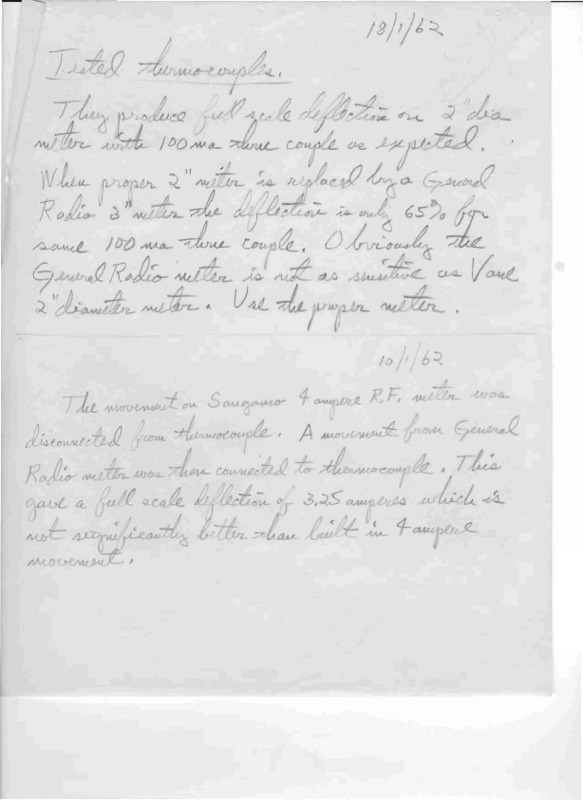 18/1/62
Tested thermocouples.
They produce full scale deflection on 2" dia
meter with 100 ma thme couple as expected.
When proper 2" meter is replaced by a General
Radio 3" meter the deflection is only 65% for
same 100 ma thme couple. Obviously the
General Radio meter is not as sensitive as Vane
2" diameter meter. Use the proper meter.
10/1/62
The movement on Sangamo 4 ampere R.F. meter was
disconnected from thermocouple. A movement from General
Radio meter was then connected to thermocouple. This
gave a full scale deflection of 3.25 amperes which is
not significantly better than built in 4 ampere
movement.